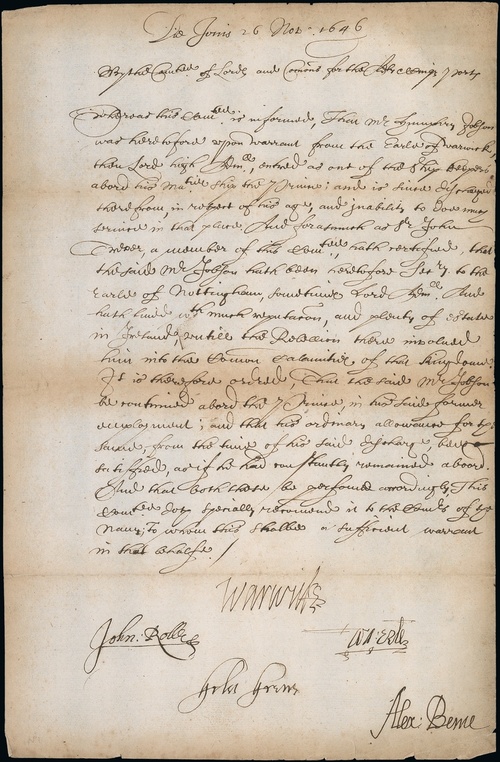 Die Jovis 26 Nov: 1646
By the Comtee of Lords and Comons for the
Whereas this Comtee is informed, That Mr Humphry Jobson
was heretofore upon warrant from the Earle of Warwick
then Lord high Admll, entred as one of the Ship keepers
abord his Maties Ship the Prince; and is since discharged
therefrom, in respect of his age, and inability to doe any
service in that place. And forasmuch as Sr John
a member of this Comtee, hath certified, that
the said Mr Jobson hath been heretofore Secry. to the
Earle of Nottingham, sometime Lord Admll. And
hath lived wth much reputacon, and plenty of Estate
in Ireland, untill the Rebellion there involved
him into the Comon Calamities of that Kingdome.
It is therefore ordred, That the said Mr Jobson
be continued abord the Prince, in his said former
employment; and that his ordinary allowance for the
same, from the time of his said discharge, bee
satisfied, as if he had constantly remained aboord.
And that both these be performed accordingly, This
Comtee doth specially recomend it to the Comrs of the
Navy; To whom this shalbe a sufficient warrant
in that behalfe /
Warwick
John: Rolle
Alex: Bence